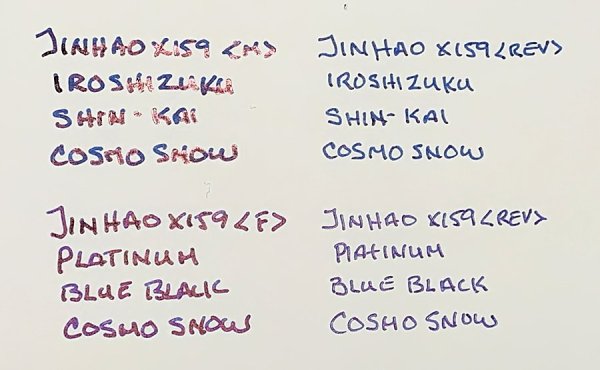 JINHAO X159 <M>
IROSHIZUKU
SHIN-KAI
COSMO SNOW
JINHAO X159 <REV>
IROSHIZUKU
SHIN-KAI
COSMO SNOW
JINHAO X159 <F>
PLATINUM
BLUE BLACK
COSMO SNOW
JINHAO X159 <REV>
PLATINUM
BLUE BLACK
COSMO SNOW